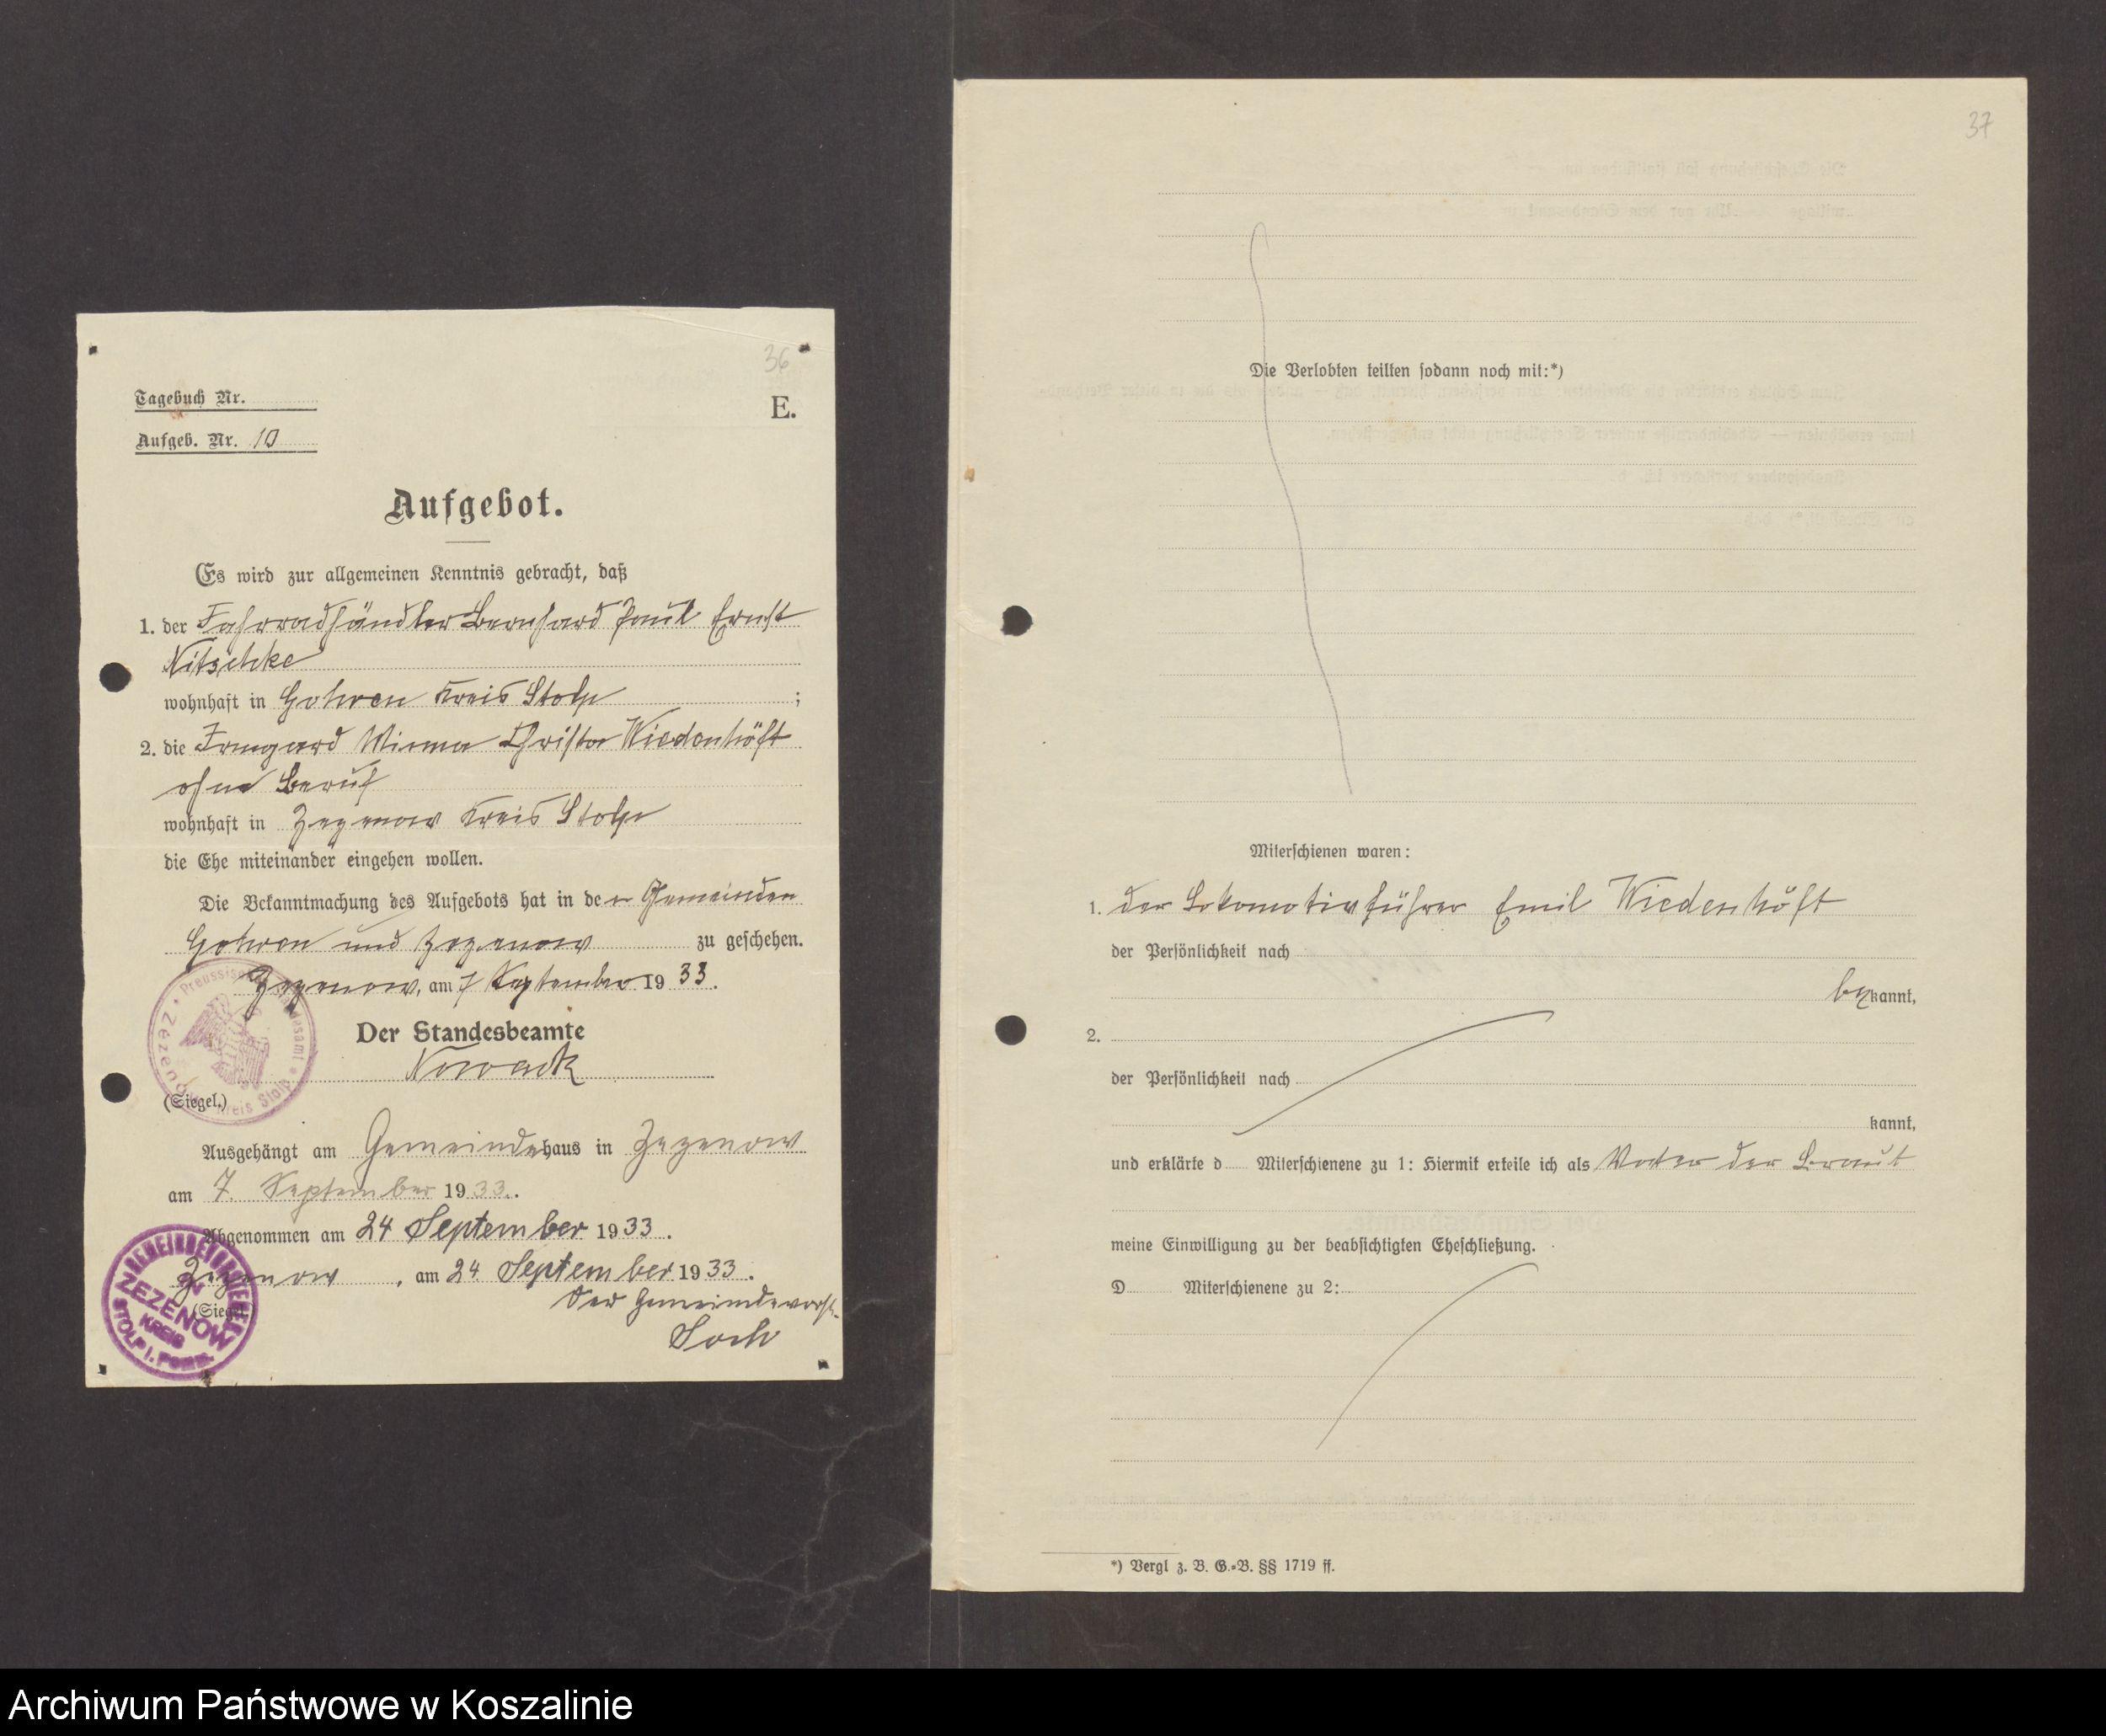 36
Tagebuch Nr.
E.
Aufgeb. Nr. 10
Aufgebot.
Es wird zur allgemeinen Kenntnis gebracht, daß
1. der Fahrradhändler Bernhard Paul Ernst
Nitschke
wohnhaft in Gohren Kreis Stolp ;
2. die Irmgard Minna Christa Wiedenhöft
ohne Beruf
wohnhaft in Zezenow Kreis Stolp
die Ehe miteinander eingehen wollen.
Die Bekanntmachung des Aufgebots hat in den Gemeinden
Gohren und Zezenow zu geschehen.
Zezenow, am 7 September 1933.
Der Standesbeamte
Nowack
(Siegel.)
Preussisches Standesamt Zezenow Kreis Stolp
Ausgehängt am Gemeindehaus in Zezenow
am 7. September 1933.
Abgenommen am 24 September 1933.
Zezenow, am 24 September 1933.
(Siegel.)
ZEZENOW
KREIS
STOLP i. Pomm.
Der Gemeindevorst.
37
Die Verlobten teilten sodann noch mit:*)
Miterschienen waren:
1. der Lokomotivführer Emil Wiedenhöft
der Persönlichkeit nach
bekannt,
2.
der Persönlichkeit nach
kannt,
und erklärte d Miterschienene zu 1: Hiermit erteile ich als Vater der Braut
meine Einwilligung zu der beabsichtigten Eheschließung.
D Miterschienene zu 2:
*) Vergl z. B. G.=B. §§ 1719 ff.
Archiwum Państwowe w Koszalinie